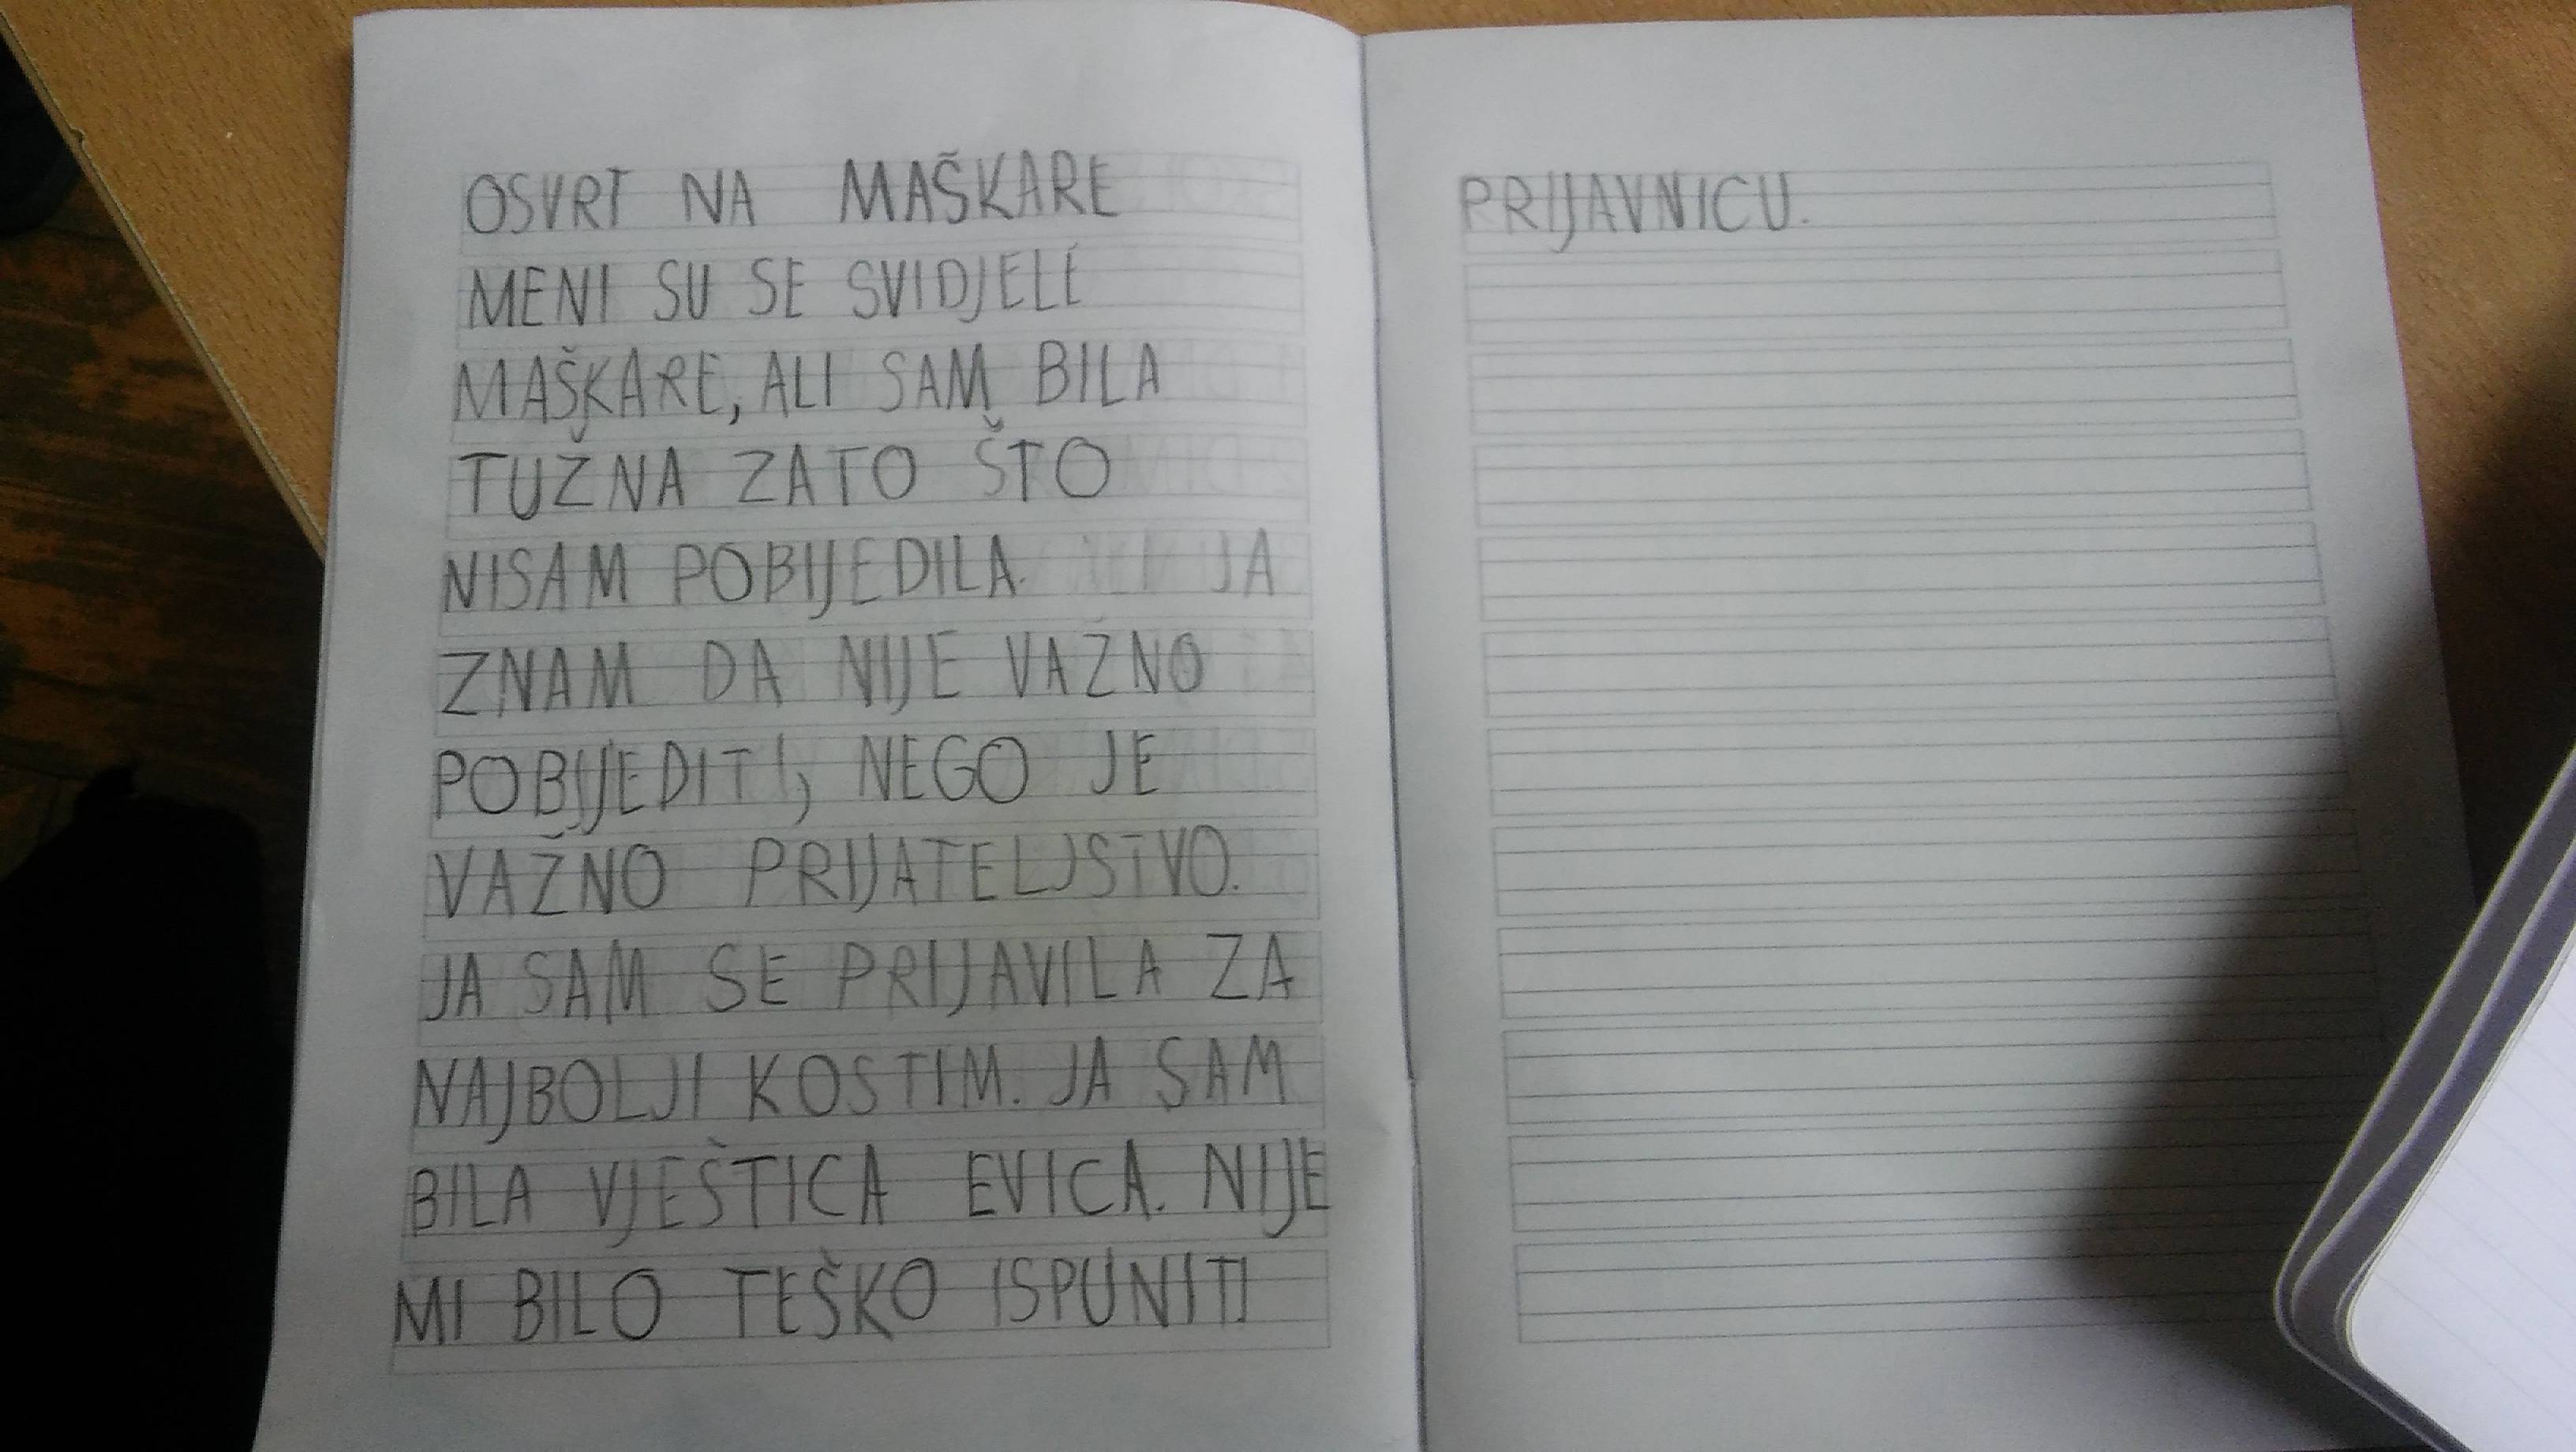 OSVRT NA MAŠKARE
MENI SU SE SVIDJELE
MAŠKARE, ALI SAM BILA
TUŽNA ZATO ŠTO
NISAM POBIJEDILA. JA
ZNAM DA NIJE VAŽNO
POBIJEDITI, NEGO JE
VAŽNO PRIJATELJSTVO.
JA SAM SE PRIJAVILA ZA
NAJBOLJI KOSTIM. JA SAM
BILA VJEŠTICA EVICA. NIJE
MI BILO TEŠKO ISPUNITI
PRIJAVNICU.